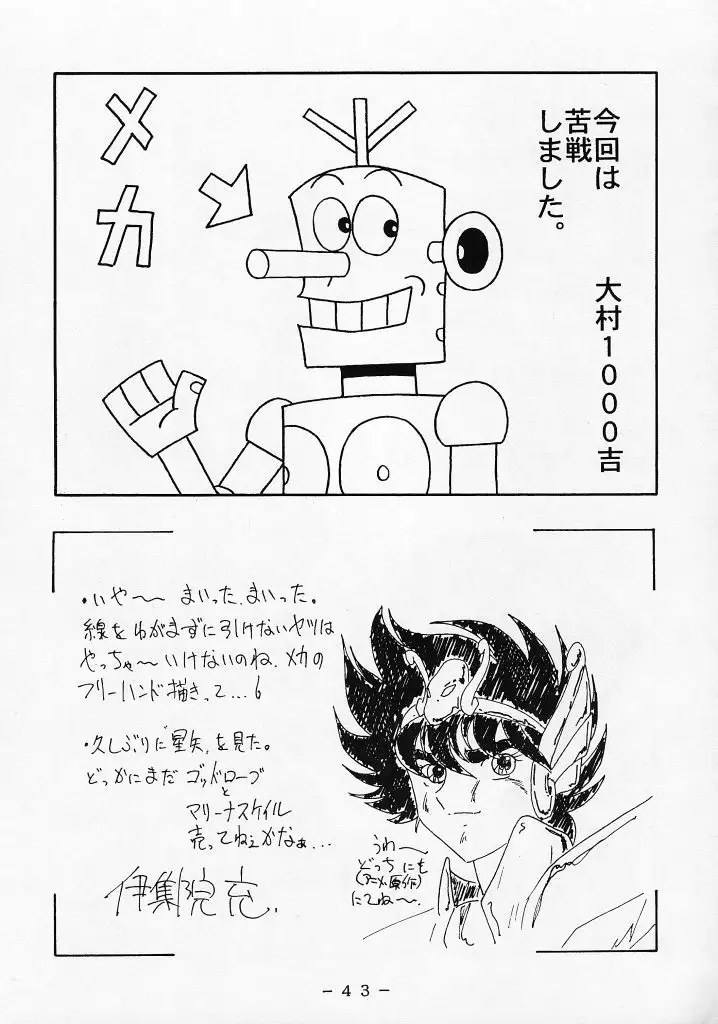 メカ
今回は
苦戦
しました。
大村1000吉
・いや〜〜 まいった、まいった。
線をゆがまずに引けないヤツは
やっちゃ〜いけないのね、メカの
フリーハンド描きって…6
・久しぶりに"星矢"を見た。
どっかにまだ ゴッドローブ
と
マリーナスケイル
売ってねぇかなぁ...
伊集院充.
うわ〜
どっちにも
(アニメ、原作)
にてね〜.
-43-